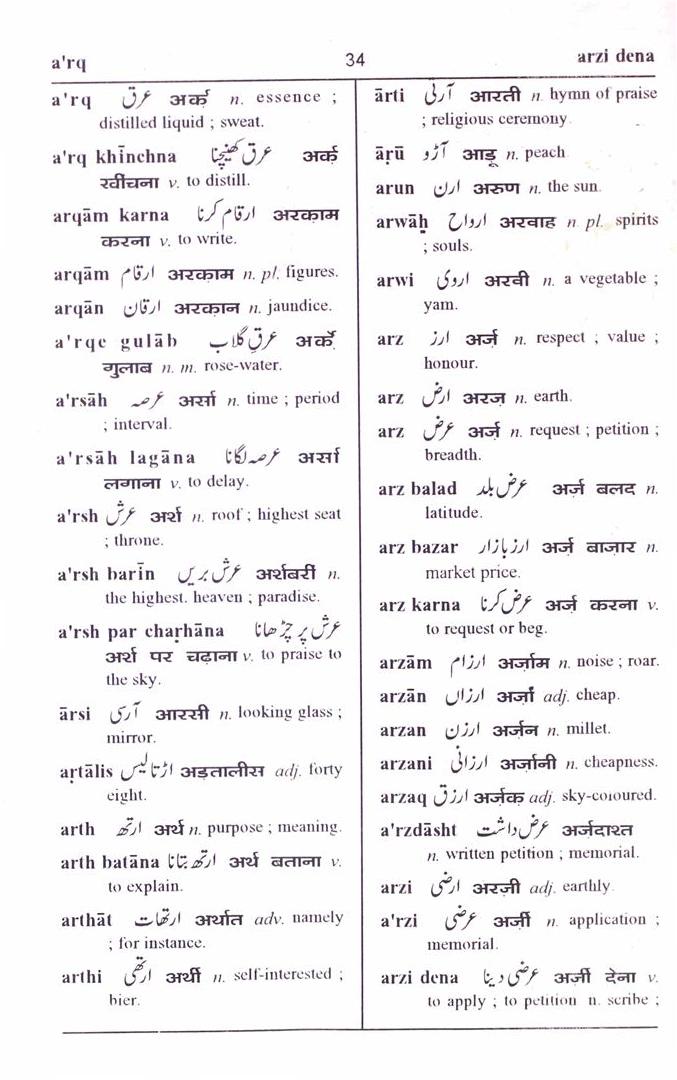 a'rq
34
arzi dena
a'rq عرق अर्क n. essence ;
distilled liquid ; sweat.
a'rq khīnchna عرق کھینچنا अर्क
खींचना v. to distill.
arqām karna ارقام کرنا अरकाम
करना v. to write.
arqām ارقام अरकाम n. pl. figures.
arqān ارقان अरकान n. jaundice.
a'rqe gulāb عرقِ گلاب अर्के
गुलाब n. m. rose-water.
a'rsāh عرصہ अर्सा n. time ; period
; interval.
a'rsāh lagāna عرصہ لگانا अर्सा
लगाना v. to delay.
a'rsh عرش अर्श n. roof ; highest seat
; throne.
a'rsh barīn عرش بریں अर्शबरीं n.
the highest. heaven ; paradise.
a'rsh par chaṛhāna عرش پر چڑھانا
अर्श पर चढ़ाना v. to praise to
the sky.
ārsi آرسی आरसी n. looking glass ;
mirror.
aṛtālis اڑتالیس अड़तालीस adj. forty
eight.
arth ارتھ अर्थ n. purpose ; meaning.
arth batāna ارتھ بتانا अर्थ बताना v.
to explain.
arthāt ارتھات अर्थात adv. namely
; for instance.
arthi ارتھی अर्थी n. self-interested ;
bier.
ārti آرتی आरती n. hymn of praise
; religious ceremony.
āṛū آڑو आड़ू n. peach
arun ارن अरुण n. the sun.
arwāḥ ارواح अरवाह n. pl. spirits
; souls.
arwi اروی अरवी n. a vegetable ;
yam.
arz ارز अर्ज़ n. respect ; value ;
honour.
arz ارض अरज़ n. earth.
arz عرض अर्ज़ n. request ; petition ;
breadth.
arz balad عرض بلد अर्ज़ बलद n.
latitude.
arz bazar ارز بازار अर्ज़ बाज़ार n.
market price.
arz karna عرض کرنا अर्ज़ करना v.
to request or beg.
arzām ارزام अर्ज़ाम n. noise ; roar.
arzān ارزاں अर्ज़ां adj. cheap.
arzan ارزن अर्ज़न n. millet.
arzani ارزانی अर्ज़ानी n. cheapness.
arzaq ارزق अर्ज़क़ adj. sky-coloured.
a'rzdāsht عرض داشت अर्ज़दाश्त
n. written petition ; memorial.
arzi ارضی अरज़ी adj. earthly.
a'rzi عرضی अर्ज़ी n. application ;
memorial.
arzi dena عرضی دینا अर्ज़ी देना v.
to apply ; to petition n. scribe ;